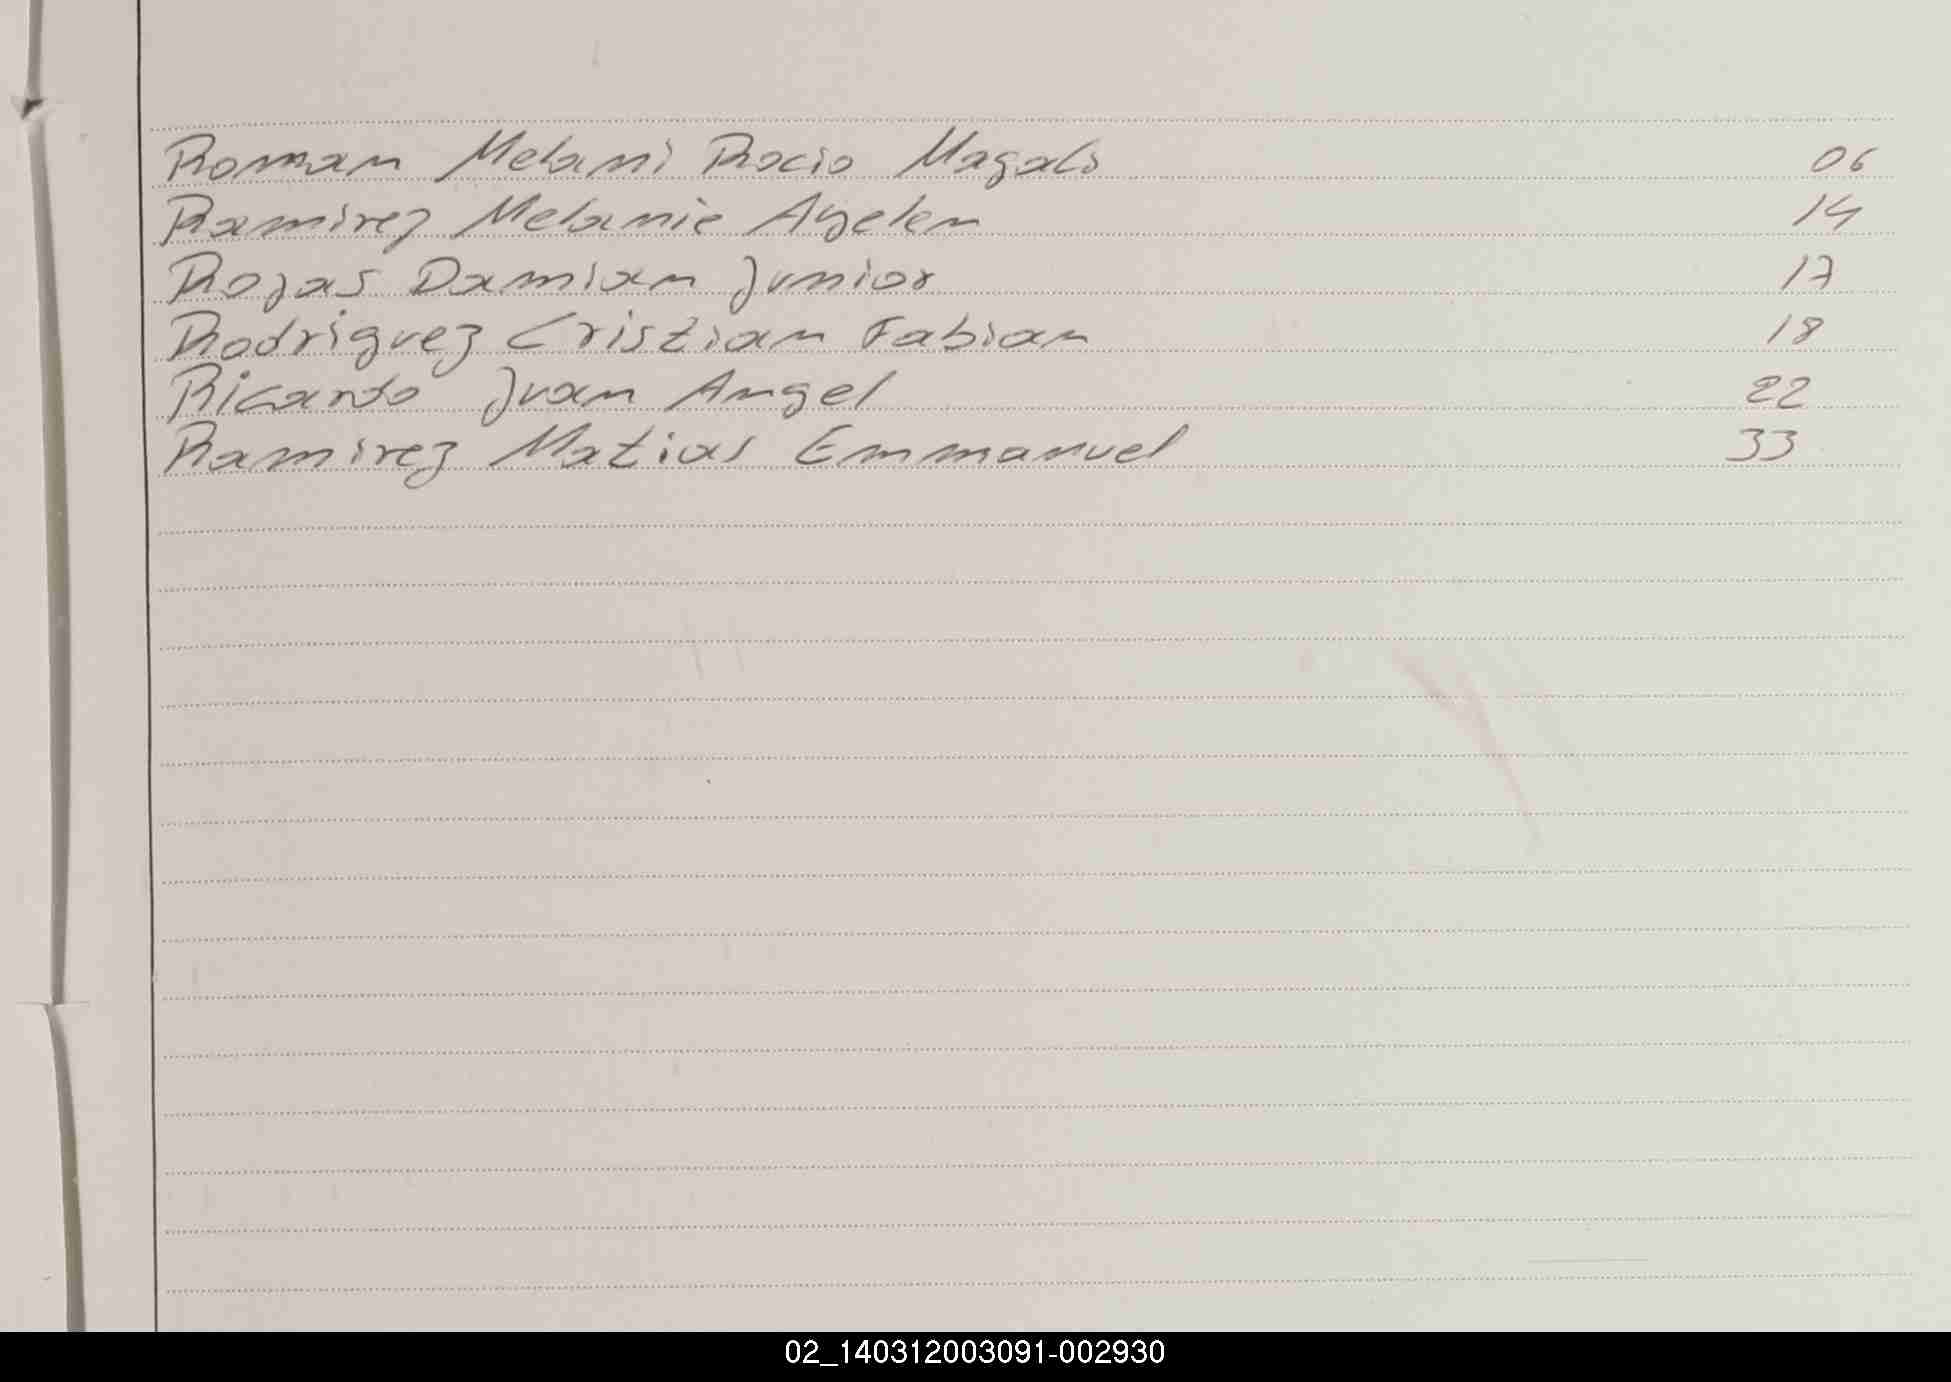 Roman Melani Rocio Magali 06
Ramirez Melanie Ayelen 14
Rojas Damian Junior 17
Rodriguez Cristian Fabian 18
Ricardo Juan Angel 22
Ramirez Matias Emmanuel 33
02_140312003091-002930